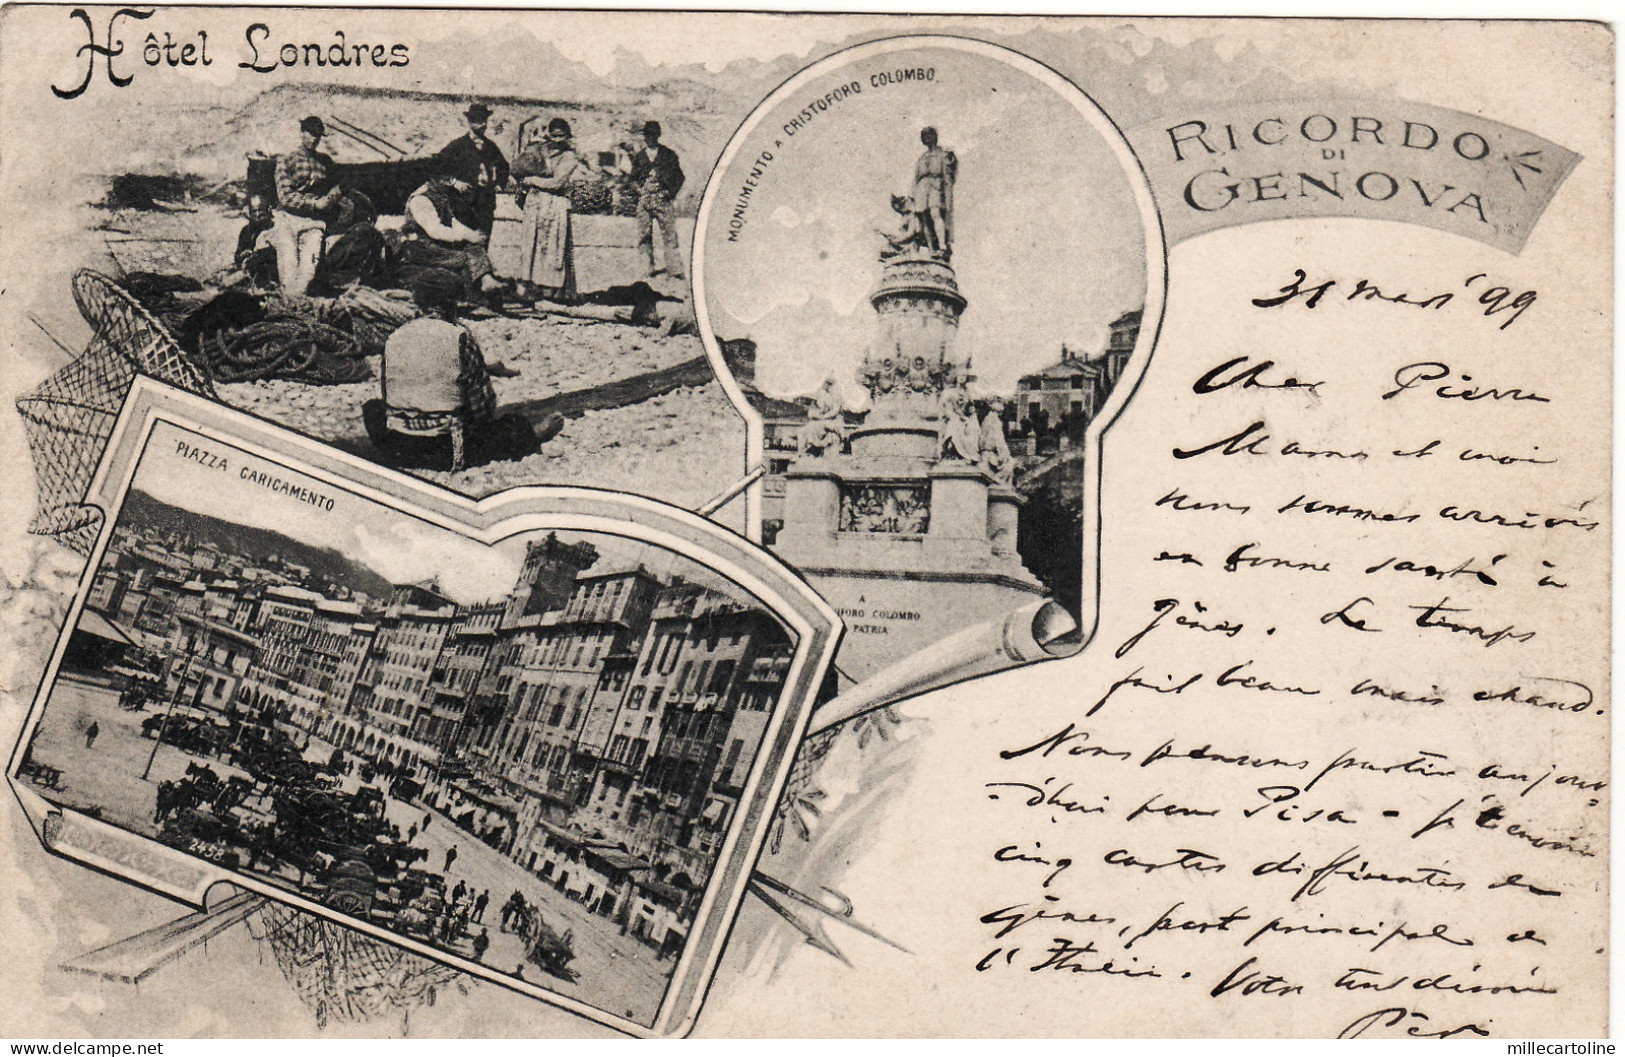 Hôtel Londres
MONUMENTO A CRISTOFORO COLOMBO.
RICORDO
DI
GENOVA
PIAZZA CARICAMENTO
2458
A
FORO COLOMBO
PATRIA
31 mars '99
Cher Pierre
Mama et moi
nous sommes arrivés
en bonne santé à
Gênes. Le temps
fait beau mais chaud.
Nous pensons partir aujour-
-d'hui pour Pisa - je t'envoie
cinq cartes différentes de
Gênes, port principal de
l'Italie. Votre
millecartoline